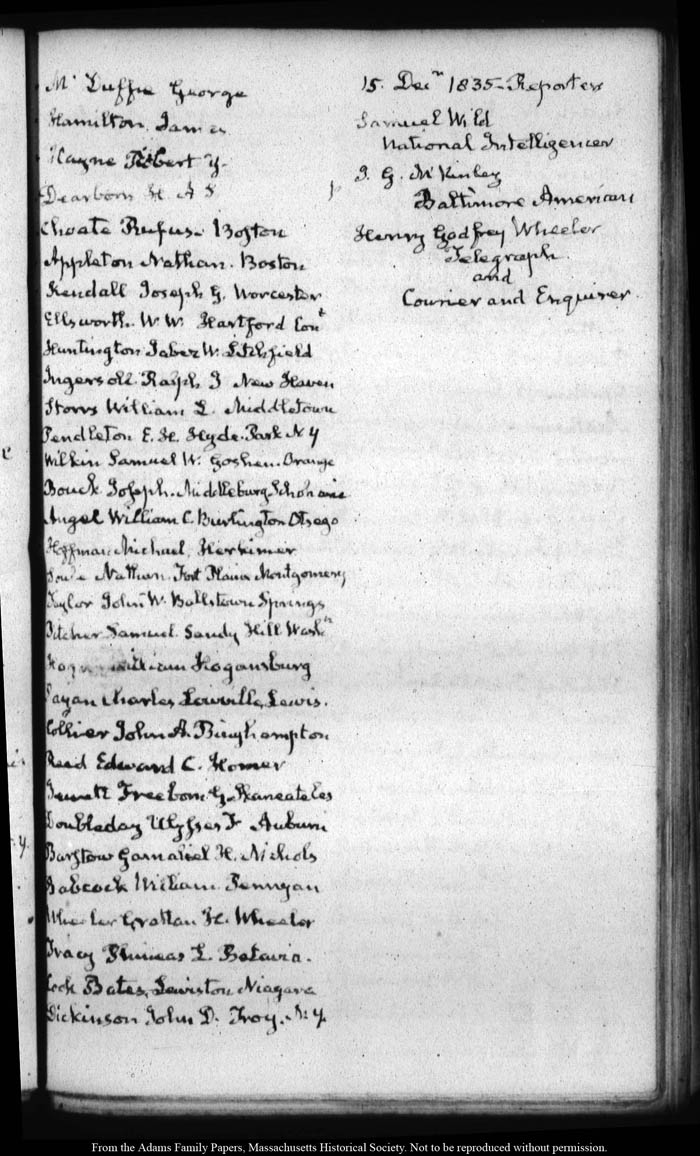 Mc Duffie George
Hamilton James
Hayne Robert Y.
Dearborn H. A S
Choate Rufus. Boston
Appleton Nathan. Boston
Kendall Joseph G. Worcester
Ellsworth. W. W. Hartford Cont
Huntington Jabez W. Litchfield
Ingersoll Ralph I New Haven
Storrs William L. Middletown
Pendleton E. H. Hyde. Park N Y
Wilkin Samuel W. Goshen. Orange
Bouck Joseph. Middleburg Schoharie
Angel William C. Burlington Otsego
Hoffman Michael, Herkimer
Soule Nathan. Fort Plain Montgomery
Taylor John W. Ballstown Springs
Pitcher Samuel. Sandy Hill Washn
Hogan William Hogansburg
Dayan Charles Lowville, Lewis.
Collier John A. Binghampton
Reed Edward C. Homer
Jewett Freeborn G. Skaneateles
Doubleday Ulysses F Auburn
Barstow Gamaliel H. Nichols
Babcock William Pennyan
Wheeler Grattan H. Wheeler
Tracy Phineas L. Batavia.
Cook Bates, Lewiston Niagara
Dickinson John D. Troy. N. Y.
15. Decr 1835 - Reporters
Samuel Wild
National Intelligencer
J. G. McKinley
Baltimore American
Henry Godfrey Wheeler
Telegraph
and
Courier and Enquirer.
From the Adams Family Papers, Massachusetts Historical Society. Not to be reproduced without permission.